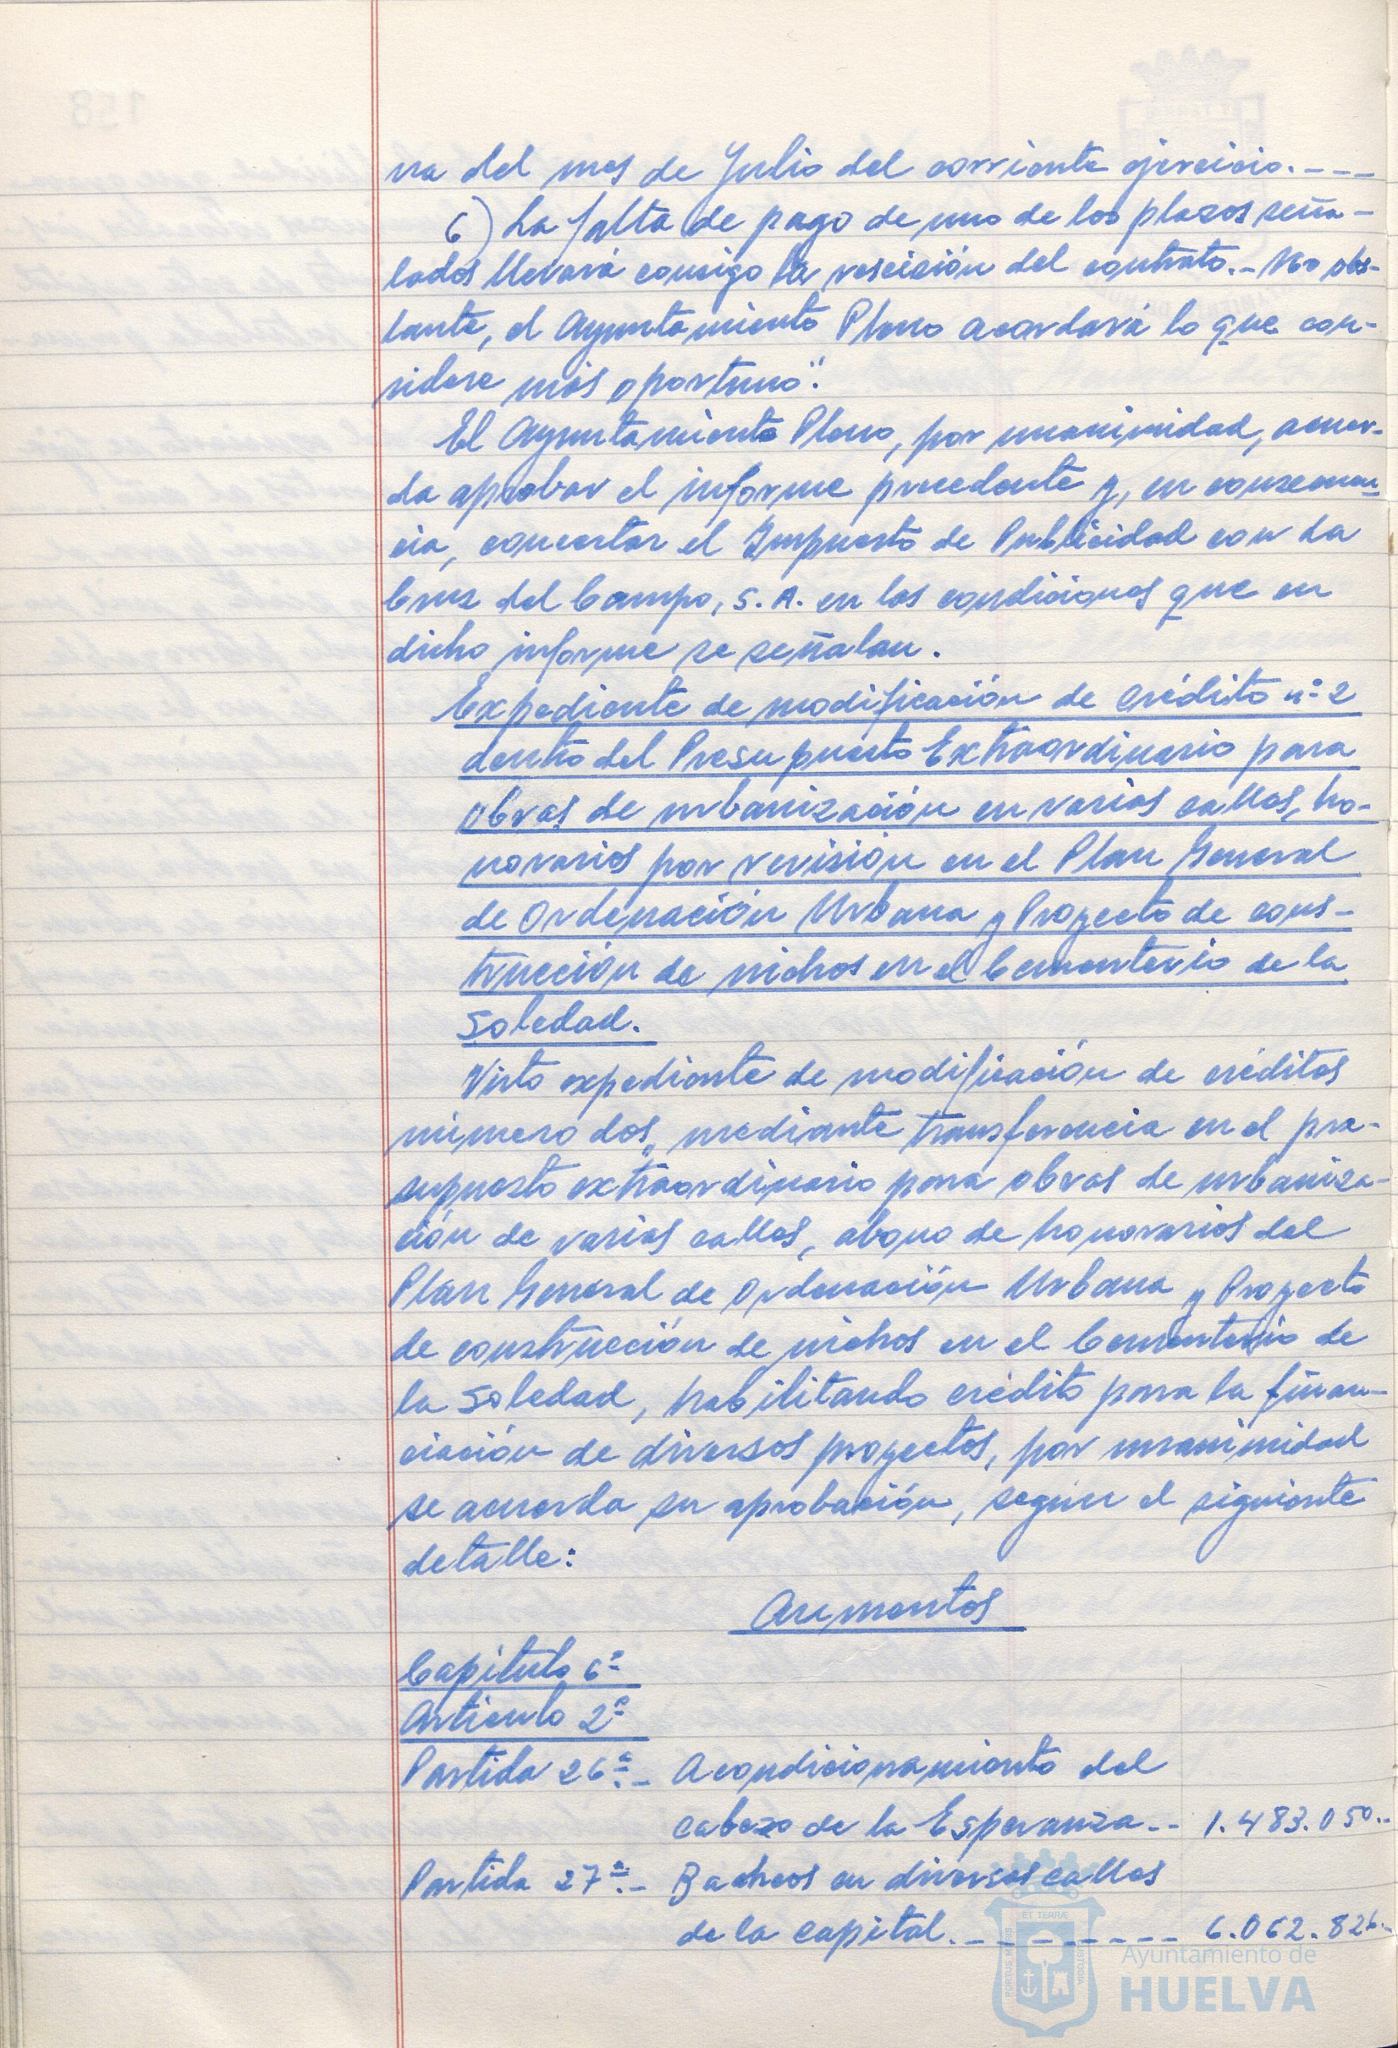 na del mes de Julio del corriente ejercicio.----
6) La falta de pago de uno de los plazos seña-
lados llevará consigo la rescisión del contrato.- No obs-
tante, el Ayuntamiento Pleno acordará lo que con-
sidere más oportuno".
El Ayuntamiento Pleno, por unanimidad, acuer-
da aprobar el informe precedente y, en consecuen-
cia, concertar el Impuesto de Publicidad con La
Cruz del Campo, S.A. en las condiciones que en
dicho informe se señalan.
Expediente de modificación de crédito nº 2
dentro del Presupuesto Extraordinario para
obras de urbanización en varias calles, ho-
norarios por revisión en el Plan General
de Ordenación Urbana y Proyecto de cons-
trucción de nichos en el Cementerio de la
Soledad.
Visto expediente de modificación de créditos
número dos, mediante transferencia en el pre-
supuesto extraordinario para obras de urbaniza-
ción de varias calles, abono de honorarios del
Plan General de Ordenación Urbana y Proyecto
de construcción de nichos en el Cementerio de
la Soledad, habilitando crédito para la finan-
ciación de diversos proyectos, por unanimidad
se acuerda su aprobación, según el siguiente
detalle:
Aumentos
Capítulo 6º
Artículo 2º
Partida 26ª.- Acondicionamiento del
cabezo de la Esperanza.-- 1.483.050.-
Partida 27ª.- Bacheos en diversas calles
de la capital.--------- 6.062.826.-
Ayuntamiento de
HUELVA